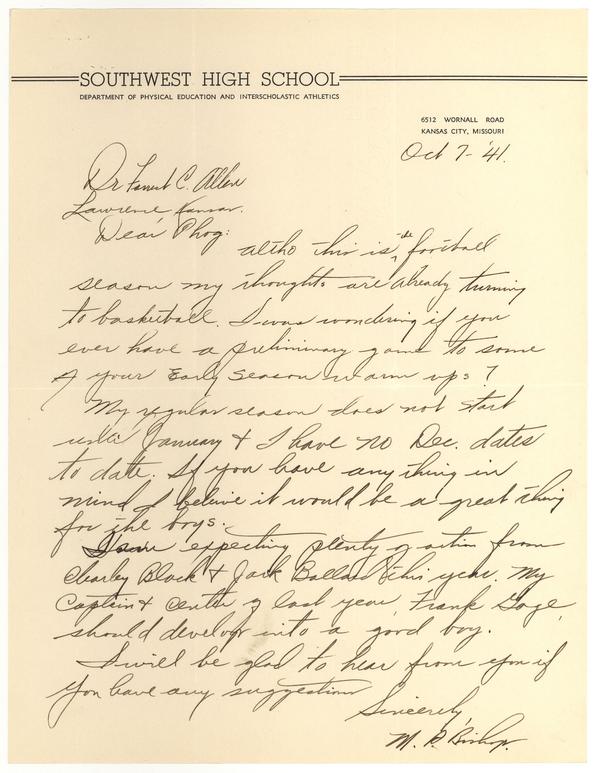 SOUTHWEST HIGH SCHOOL
DEPARTMENT OF PHYSICAL EDUCATION AND INTERSCHOLASTIC ATHLETICS
6512 WORNALL ROAD
KANSAS CITY, MISSOURI
Oct 7-'41.
Dr Forrest C. Allen
Lawrence Kansas.
Dear Phog:
altho this is the football
season my thoughts are already turning
to basketball. I was wondering if you
ever have a preliminary game to some
of your Early Season warm ups?
My regular season does not start
until January & I have no Dec. dates
to date. If you have any thing in
mind I believe it would be a great thing
for the boys.
I am expecting plenty of action from
Charley Black & Jack Ballard this year. My
Captain & center of last year, Frank Gage,
should develop into a good boy.
I will be glad to hear from you if
you have any suggestions
Sincerely,
M. P. Bishop.